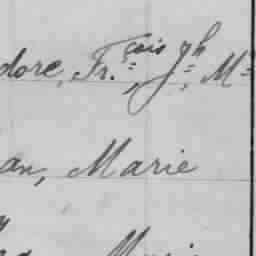 dore, Fr.çois Jh, M
an, Marie